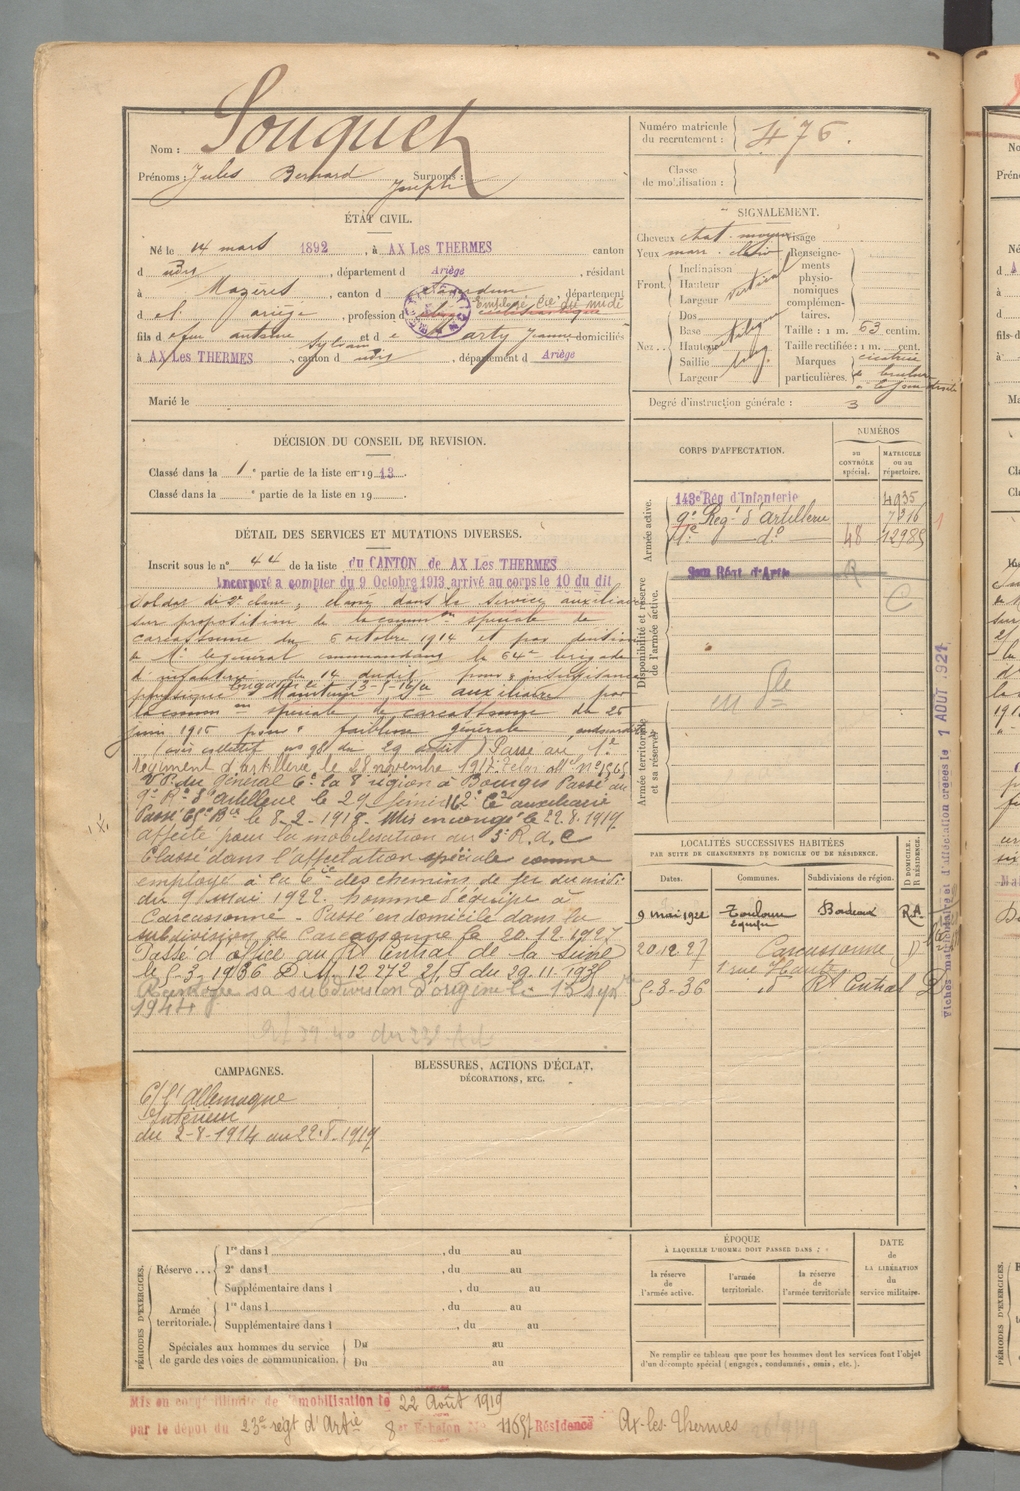 Nom : Souquet
Prénoms : Jules Bernard Joseph Surnoms :
Numéro matricule du recrutement : 476.
Classe de mobilisation :
ÉTAT CIVIL.
Né le 14 mars 1892, à AX Les THERMES canton
d udit, département d Ariège, résidant
à Mazères, canton d Saverdun, département
d el Ariège, profession d Employé Cie du midi
fils d efeu antoine Sylvain et d e Marty Jeanne domiciliés
à AX Les THERMES, canton d udit, département d Ariège
Marié le
SIGNALEMENT.
Cheveux chat. moyen Visage
Yeux marr. clair
Front. Inclinaison vertical
Hauteur
Largeur
Nez.. Dos
Base
Hauteur
Saillie
Largeur
Renseignements physionomiques complémentaires.
Taille : 1 m. 63 centim.
Taille rectifiée : 1 m. cent.
Marques particulières. cicatrice
Degré d'instruction générale : 3
DÉCISION DU CONSEIL DE REVISION.
Classé dans la 1e partie de la liste en 1913.
Classé dans la e partie de la liste en 19
DÉTAIL DES SERVICES ET MUTATIONS DIVERSES.
Inscrit sous le n° 44 de la liste du CANTON de AX Les THERMES
Incorporé a compter du 9 Octobre 1913, arrivé au corps le 10 du dit
soldat de 2e classe, classé dans le service auxiliaire
sur proposition de la comm.on spéciale de
carcassonne du 6 octobre 1914 et par décision
de Mr le général commandant la 64e brigade
d'infanterie du 14 dudit pour insuffisance
physique Maintenu auxiliaire par
la comm.on spéciale de carcassonne du 26
juin 1916 pour faiblesse générale
(avis collectif no 98 du 29 août) Passé au 1er
régiment d'artillerie le 28 novembre 1917.
du Général Ct la 8e région à Bourges Passé au
9e Rt d'artillerie le 29 162e Cie auxiliaire
Passé 65e Bie le 8-2-1918. Mis en congé le 22.8.1919
affecté pour la mobilisation au 5e R.a.C
Classé dans l'affectation spéciale comme
employé à la Cie des chemins de fer du midi
du 9 Mai 1922. homme d'équipe à
Carcassonne - Passé en domicile dans la
subdivision de Carcassonne le 20.12.1927
Passé d'office au Rt Central de la Seine
le 5-3-1936 D.M. 12 272
sa subdivision d'origine le 15
1944
CORPS D'AFFECTATION.
NUMÉROS
AU CONTRÔLE spécial.
MATRICULE ou au répertoire.
Armée active.
143e Rég d'Infanterie 4935
9e Reg.t d'artillerie 7316
1er do 48 12985
Disponibilité et réserve de l'armée active.
R
C
Armée territoriale et sa réserve.
LOCALITÉS SUCCESSIVES HABITÉES
PAR SUITE DE CHANGEMENTS DE DOMICILE OU DE RÉSIDENCE.
Dates. Communes. Subdivisions de région. D DOMICILE. R RÉSIDENCE.
9 mai 1922 Toulouse Bordeaux R.A
20.12.27 Carcassonne D
1 rue Haute
5-3-36 id Rt Central D
Fiches matricule et d'affectation créées le 1 AOUT 1924
CAMPAGNES.
C/ l'Allemagne
Intérieur
du 2-8-1914 au 22.8.1919
BLESSURES, ACTIONS D'ÉCLAT,
DÉCORATIONS, ETC.
PÉRIODES D'EXERCICES.
Réserve... 1re dans l , du au
2e dans l , du au
Supplémentaire dans l , du au
Armée territoriale. 1re dans l , du au
Supplémentaire dans l , du au
Spéciales aux hommes du service de garde des voies de communication. Du au
Du au
ÉPOQUE
À LAQUELLE L'HOMME DOIT PASSER DANS :
la réserve de l'armée active.
l'armée territoriale.
la réserve de l'armée territoriale
DATE de LA LIBÉRATION du service militaire.
Ne remplir ce tableau que pour les hommes dont les services font l'objet
d'un décompte spécial (engagés, condamnés, omis, etc.).
Mis en congé illimité de démobilisation le 22 Août 1919
par le dépôt du 23e regt d'Artie 8e Échelon No 11657 Résidence Ax-les-Thermes